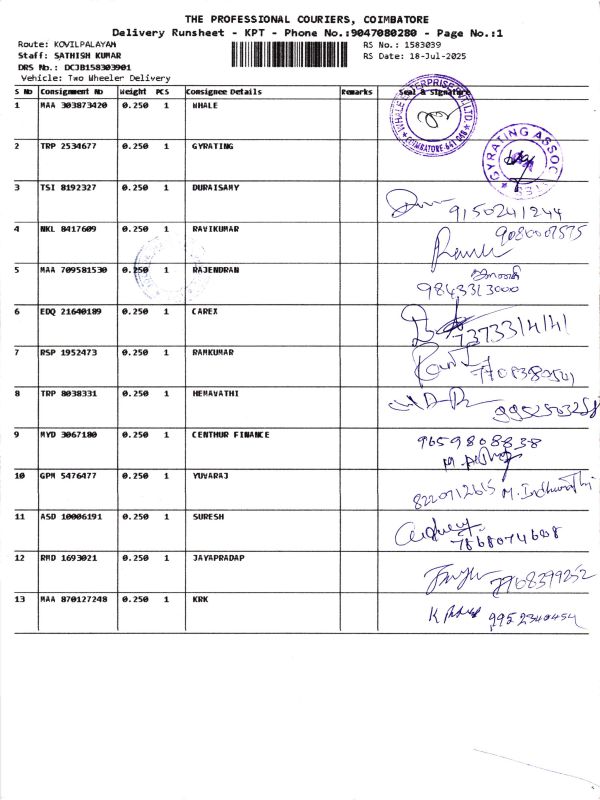 THE PROFESSIONAL COURIERS, COIMBATORE
Delivery Runsheet - KPT - Phone No.:9047080280 - Page No.:1
Route: KOVILPALAYAM
Staff: SATHISH KUMAR
DRS No.: DCJB158303901
Vehicle: Two Wheeler Delivery
RS No.: 1583039
RS Date: 18-Jul-2025
S No Consignment No Weight PCS Consignee Details Remarks Seal & Signature
1 MAA 303873420 0.250 1 WHALE
COIMBATORE-641
2 TRP 2534677 0.250 1 GYRATING
GYRATING ASSOC
3 TSI 8192327 0.250 1 DURAISAMY
9150241244
4 NKL 8417609 0.250 1 RAVIKUMAR
5 MAA 709581530 0.250 1 RAJENDRAN
9843313000
6 EDQ 21640189 0.250 1 CAREX
7373314141
7 RSP 1952473 0.250 1 RAMKUMAR
8 TRP 8038331 0.250 1 HEMAVATHI
9 MYD 3067180 0.250 1 CENTHUR FINANCE
9659808838
10 GPM 5476477 0.250 1 YUVARAJ
8220712615 M. Indhumathi
11 ASD 10006191 0.250 1 SURESH
12 RMD 1693021 0.250 1 JAYAPRADAP
13 MAA 870127248 0.250 1 KRK
9952340454